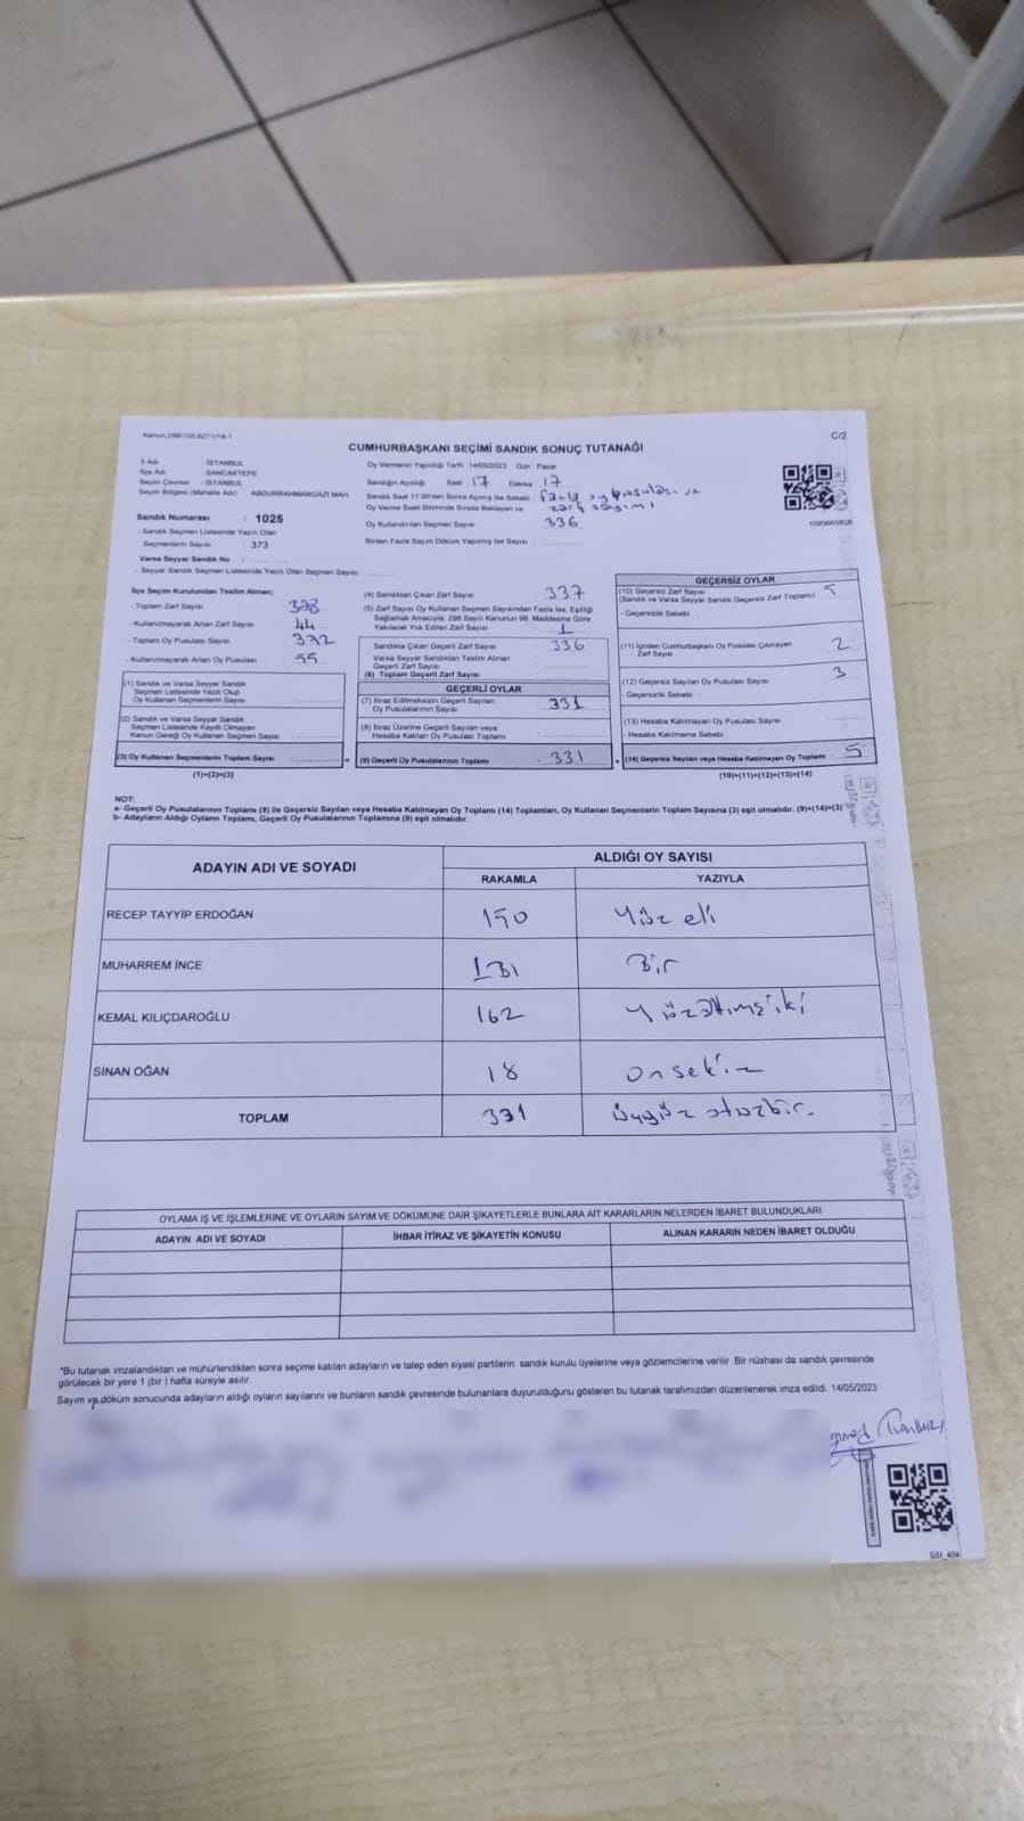 C/2
CUMHURBAŞKANI SEÇİMİ SANDIK SONUÇ TUTANAĞI
İl Adı : İSTANBUL
İlçe Adı : SANCAKTEPE
Seçim Çevresi : İSTANBUL
Seçim Bölgesi (Mahalle Adı) : ABDURRAHMANGAZİ MAH.
Sandık Numarası : 1025
- Sandık Seçmen Listesinde Yazılı Olan
Seçmenlerin Sayısı : 373
Varsa Seyyar Sandık No :
- Seyyar Sandık Seçmen Listesinde Yazılı Olan Seçmen Sayısı
Oy Vermenin Yapıldığı Tarih 14/05/2023 Gün : Pazar
Sandığın Açıldığı Saat 17 Dakika 17
Oy Kullandırılan Seçmen Sayısı 336
Birden Fazla Sayım Döküm Yapılmış İse Sayısı
İlçe Seçim Kurulundan Teslim Alınan;
- Toplam Zarf Sayısı
- Kullanılmayarak Artan Zarf Sayısı 44
- Toplam Oy Pusulası Sayısı
- Kullanılmayarak Artan Oy Pusulası 55
(1) Sandık ve Varsa Seyyar Sandık
Seçmen Listesinde Yazılı Olup
Oy Kullanan Seçmenlerin Sayısı
(2) Sandık ve Varsa Seyyar Sandık
Seçmen Listesinde Kaydı Olmayan
Kanun Gereği Oy Kullanan Seçmen Sayısı
(3) Oy Kullanan Seçmenlerin Toplam Sayısı
(1)+(2)=(3)
(4) Sandıktan Çıkan Zarf Sayısı 337
(5) Zarf Sayısı Oy Kullanan Seçmen Sayısından Fazla İse, Eşitliği
Sağlamak Amacıyla, 298 Sayılı Kanunun 98. Maddesine Göre
Yakılarak Yok Edilen Zarf Sayısı 1
Sandıkta Çıkan Geçerli Zarf Sayısı 336
Varsa Seyyar Sandıktan Teslim Alınan
Geçerli Zarf Sayısı
(6) Toplam Geçerli Zarf Sayısı
GEÇERLİ OYLAR
(7) İtiraz Edilmeksizin Geçerli Sayılan
Oy Pusulalarının Sayısı 331
(8) İtiraz Üzerine Geçerli Sayılan veya
Hesaba Katılan Oy Pusulası Toplamı
(9) Geçerli Oy Pusulalarının Toplamı 331
GEÇERSİZ OYLAR
(10) Geçersiz Zarf Sayısı
(Sandık ve Varsa Seyyar Sandık Geçersiz Zarf Toplamı) 5
- Geçersizlik Sebebi
(11) İçinden Cumhurbaşkanı Oy Pusulası Çıkmayan
Zarf Sayısı 2
(12) Geçersiz Sayılan Oy Pusulası Sayısı 3
- Geçersizlik Sebebi
(13) Hesaba Katılmayan Oy Pusulası Sayısı
- Hesaba Katılmama Sebebi
(14) Geçersiz Sayılan veya Hesaba Katılmayan Oy Toplamı 5
(10)+(11)+(12)+(13)=(14)
NOT:
a- Geçerli Oy Pusulalarının Toplamı (9) ile Geçersiz Sayılan veya Hesaba Katılmayan Oy Toplamı (14) Toplamları, Oy Kullanan Seçmenlerin Toplam Sayısına (3) eşit olmalıdır. (9)+(14)=(3)
b- Adayların Aldığı Oyların Toplamı, Geçerli Oy Pusulalarının Toplamına (9) eşit olmalıdır.
ADAYIN ADI VE SOYADI
ALDIĞI OY SAYISI
RAKAMLA YAZIYLA
RECEP TAYYİP ERDOĞAN 150 Yüz eli
MUHARREM İNCE Bir
KEMAL KILIÇDAROĞLU 162
SİNAN OĞAN 18 onsekiz
TOPLAM 331 üçyüz otuzbir.
OYLAMA İŞ VE İŞLEMLERİNE VE OYLARIN SAYIM VE DÖKÜMÜNE DAİR ŞİKAYETLERLE BUNLARA AİT KARARLARIN NELERDEN İBARET BULUNDUKLARI
ADAYIN ADI VE SOYADI İHBAR İTİRAZ VE ŞİKAYETİN KONUSU ALINAN KARARIN NEDEN İBARET OLDUĞU
*Bu tutanak imzalandıktan ve mühürlendikten sonra seçime katılan adayların ve talep eden siyasi partilerin sandık kurulu üyelerine veya gözlemcilerine verilir. Bir nüshası da sandık çevresinde
görülecek bir yere 1 (bir) hafta süreyle asılır.
Sayım ve döküm sonucunda adayların aldığı oyların sayılarını ve bunların sandık çevresinde bulunanlara duyurulduğunu gösteren bu tutanak tarafımızdan düzenlenerek imza edildi. 14/05/2023